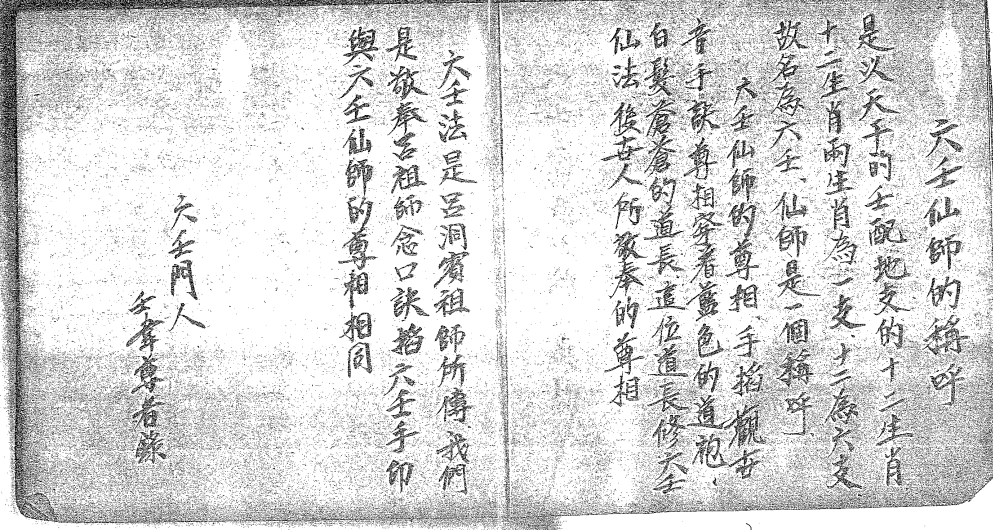 六壬仙師的稱呼
是以天干的壬配地支的十二生肖
十二生肖兩生肖為一支、十二為六支
故名為六壬、仙師是一個稱呼
六壬仙師的尊相、手掐觀世
音手訣尊相穿着藍色的道袍、
白髮蒼蒼的道長這位道長修六壬
仙法後世人所敬奉的尊相
六壬法是呂洞賓祖師所傳、我們
是敬奉呂祖師念口訣掐六壬手印
與六壬仙師的尊相相同
六壬門人
壬 尊者錄